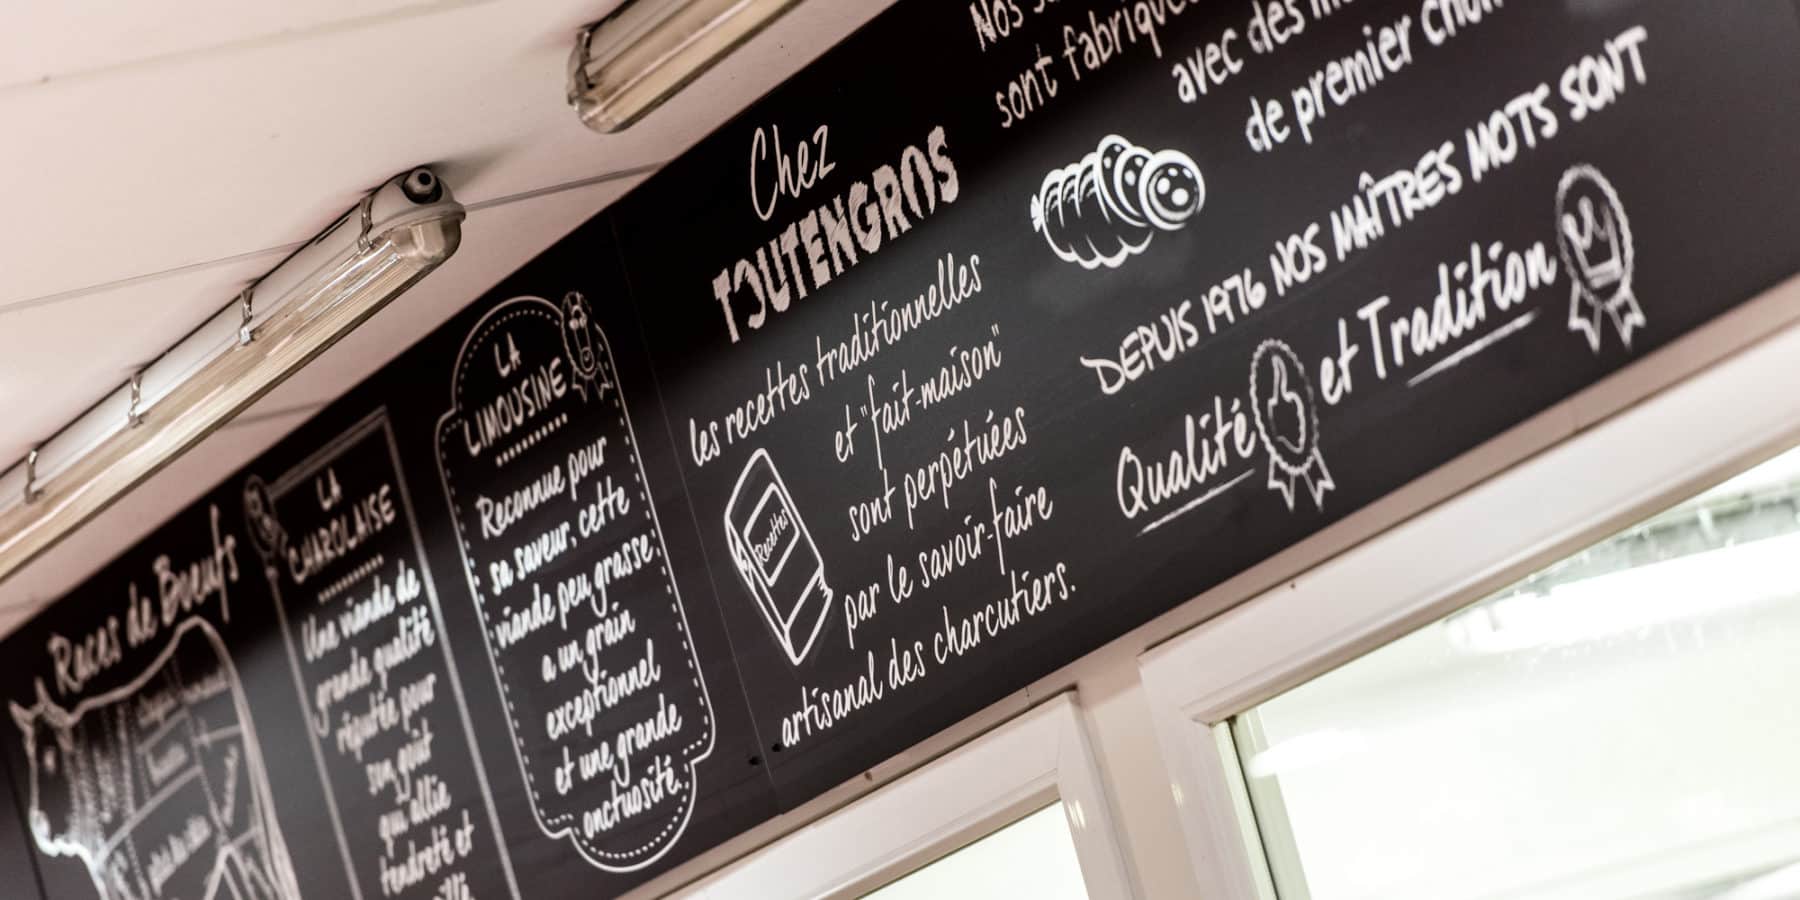 Races de Boeufs
LA
CHAROLAISE
Une viande de
grande qualité
réputée pour
son goût
qui allie
tendreté et
LA
LIMOUSINE
Reconnue pour
sa saveur, cette
viande peu grasse
a un grain
exceptionnel
et une grande
onctuosité.
Chez
TOUTENGROS
les recettes traditionnelles
et "fait-maison"
sont perpétuées
par le savoir-faire
artisanal des charcutiers.
Recettes
Nos
sont
avec des
de premier
DEPUIS 1976 NOS MAÎTRES MOTS SONT
Qualité et Tradition